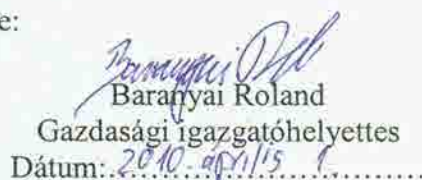 e:
Baranyai Roland
Gazdasági igazgatóhelyettes
Dátum: 2010. április 1.